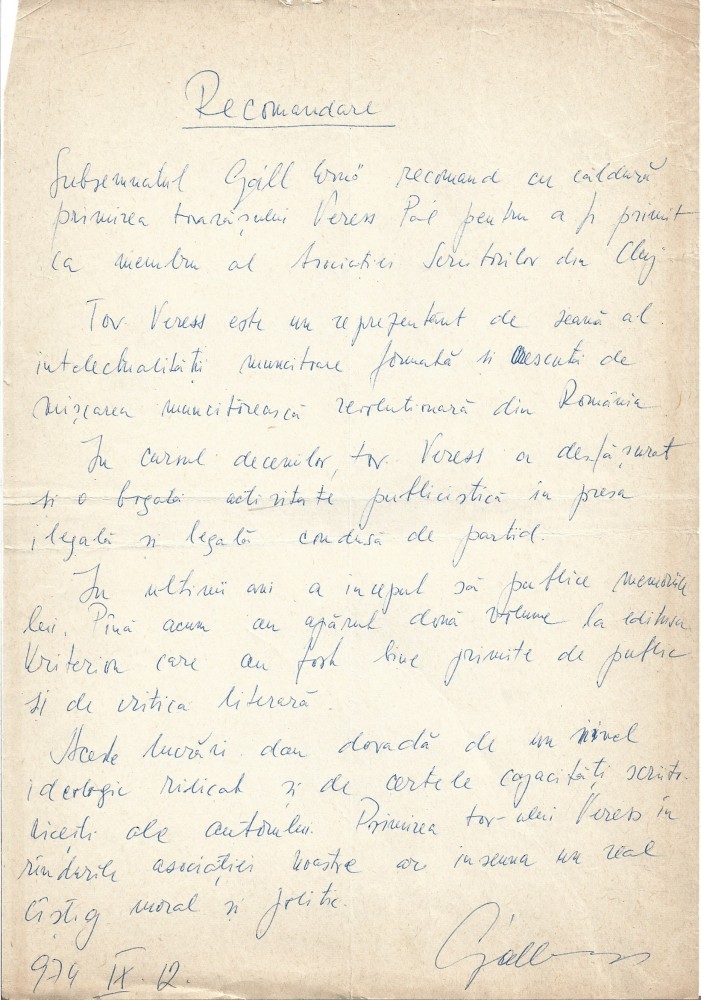 Recomandare
Subsemnatul Gáll Ernő recomand cu căldură
primirea tovarășului Veress Pál pentru a fi primit
ca membru al Asociației Scriitorilor din Cluj
Tov. Veress este un reprezentant de seamă al
intelectualității muncitoare formată si crescută de
mișcarea muncitorească revolutionară din România
In cursul deceniilor, tov. Veress a desfășurat
si o bogată activitate publicistică în presa
ilegală și legală condusă de partid.
In ultimii ani a inceput să publice memoriile
lui. Pînă acum au apărut două volume la editura
Kriterion care au fost bine primite de public
și de critica literară.
Aceste lucrări dau dovadă de un nivel
ideologic ridicat și de certele capacități scriito-
ricești ale autorului. Primirea tov-ului Veress în
rîndurile asociației noastre ar insemna un real
cîștig moral și politic.
974 IX. 12.
Gáll